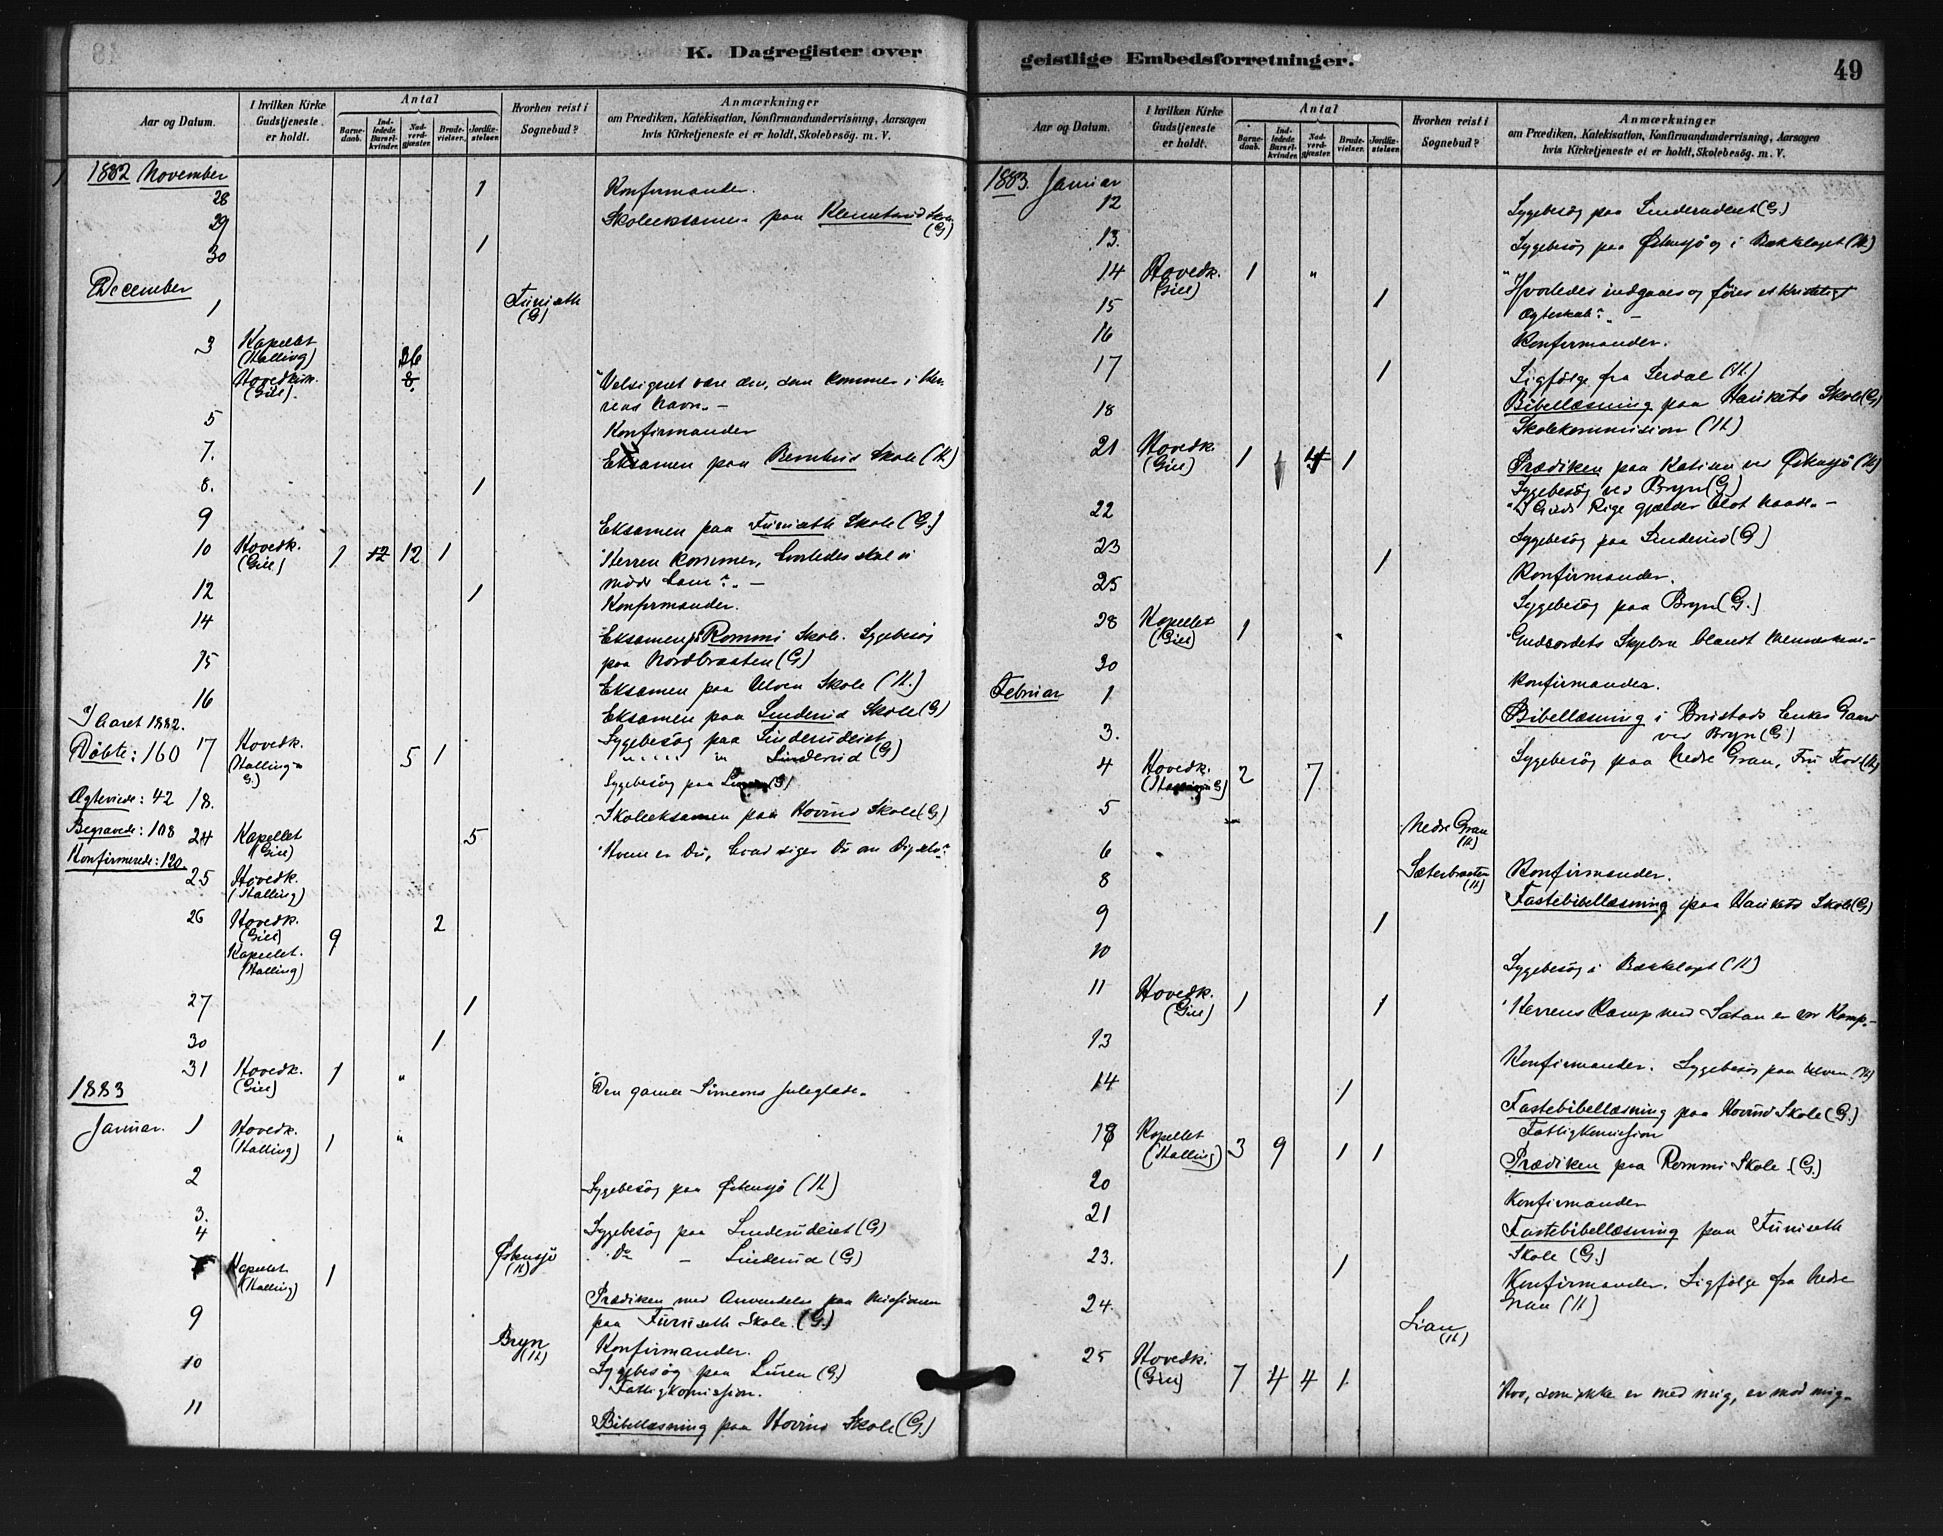 K. Dagregister over
Aar og Datum.
I hvilken Kirke Gudstjeneste er holdt.
Antal
Barnedaab.
Indledede Barselkvinder.
Nadverdgjæster.
Brudevielser.
Jordfæstelser.
Hvorhen reist i Sognebud?
Anmærkninger
om Prædiken, Katekisation, Konfirmandundervisning, Aarsagen
hvis Kirketjeneste ei er holdt, Skolebesøg. m. V.
1882 November
28 1 Konfirmander.
29 Skoleeksamen paa Klemetsrud Skole (G)
30 1
December
1 Furuseth (G)
3 Kapellet (Halling) 26
Hovedkirk. (Gill). "Velsignet være den, som kommer i Herrens Navn. –
5 Konfirmander
7. Eksamen paa Bernhus Skole (H)
8. 1
9 Eksamen paa Furuseth Skole (G.)
10 Hovedk. (Gill) 1 12 12 1 "Herren kommer, hvorledes skal vi møde ham?" –
12 1 Konfirmander.
14 Eksamen paa Rommi Skole. Sygebesøg
paa Nordbraaten (G)
15 Eksamen paa Ulven Skole (H.)
16 Eksamen paa Linderud Skole (G)
I Aaret 1882.
Døbte: 160
17 Hovedk. (Halling G.) 5 1 Sygebesøg paa Linderudeiet
" " Linderud (G)
Ægteviede: 42
18. Sygebesøg paa
Skoleeksamen paa Hovind Skole (G)
Begravede: 108
24 Kapellet (Gill) 5 "Hvem er Du, hvad siger Du om Dig selv?"
Konfirmerede: 120.
25 Hovedk. (Halling)
26 Hovedk. (Gill) 9 2
Kapellet. (Halling)
27 1
30 1
31 Hovedk. (Gill) 1 " "Den gamle Simeons Juleglæde.
1883
Januar. 1 Hovedk. (Halling) 1 "
2 Sygebesøg paa Østensjø (H)
3. Sygebesøg paa Linderudeiet (G)
4 Østensjø (H) Do – Linderud (G)
Kapellet (Halling) 1 Prædiken med Anvendelse paa Missionen
paa Furuseth Skole. (G.)
9 Bryn (H) Konfirmander.
10 Sygebesøg paa Luren (G)
Fattigkomission.
11 Bibellæsning paa Hovind Skole (G.)
geistlige Embedsforretninger.
49
Aar og Datum.
I hvilken Kirke Gudstjeneste er holdt.
Antal
Barnedaab.
Indledede Barselkvinder.
Nadverdgjæster.
Brudevielser.
Jordfæstelser.
Hvorhen reist i Sognebud?
Anmærkninger
om Prædiken, Katekisation, Konfirmandundervisning, Aarsagen
hvis Kirketjeneste ei er holdt, Skolebesøg. m. V.
1883. Januar
12 Sygebesøg paa Linderudeiet (G.)
13. Sygebesøg paa Østensjø og i Bækkelaget (H)
14 Hovedk. (Gill) 1 " "Hvorledes indgaaes og føres et kristeligt
Ægteskab?" –
15 1
16 Konfirmander.
17 1 Ligfølge fra (H.)
Bibellæsning paa Haukets Skole (G)
18 Skolekommission (H)
21 Hovedk. (Gill) 1 1 4 1 Prædiken paa ved Østensjø (H)
Sygebesøg ved Bryn (G)
22 "I Guds Rige gjælder blot Naade. –
23 1 Sygebesøg paa Linderud (G)
25 Konfirmander.
Sygebesøg paa Bryn (G.)
28 Kapellet (Gill) 1 " "Gudsordets Skjebne blandt Menneskene. –
30 Konfirmander.
Februar 1 Bibellæsning i Brustads Enkes Gaard
ved Bryn (G)
3. Sygebesøg paa Nedre Gran, Fru (H)
4 Hovedk. 2 7
5 Nedre Gran (H)
6 Konfirmander.
8 Sæterbraaten (H) Fastebibellæsning paa Haukets Skole (G)
9 1
10 Sygebesøg i Bækkelaget (H)
11 Hovedk. (Gill) 1 1 "Herrens Kamp med Satan er vor Kamp. –
13 Konfirmander. Sygebesøg paa Ulven. (H)
14 1 Fastebibellæsning paa Hovind Skole (G.)
Fattigkomission
18 Kapellet (Halling) 3 9 1 1 Prædiken paa Rommi Skole (G.)
20 Konfirmander
21 Fastebibellæsning paa Furuseth
Skole (G.)
23. 1 Konfirmander. Ligfølge fra Nedre
Gran (H)
24. Lian (H)
25 Hovedk. (Gill) 7 4 4 1 "Hvo, som ikke er med mig, er mod mig. –